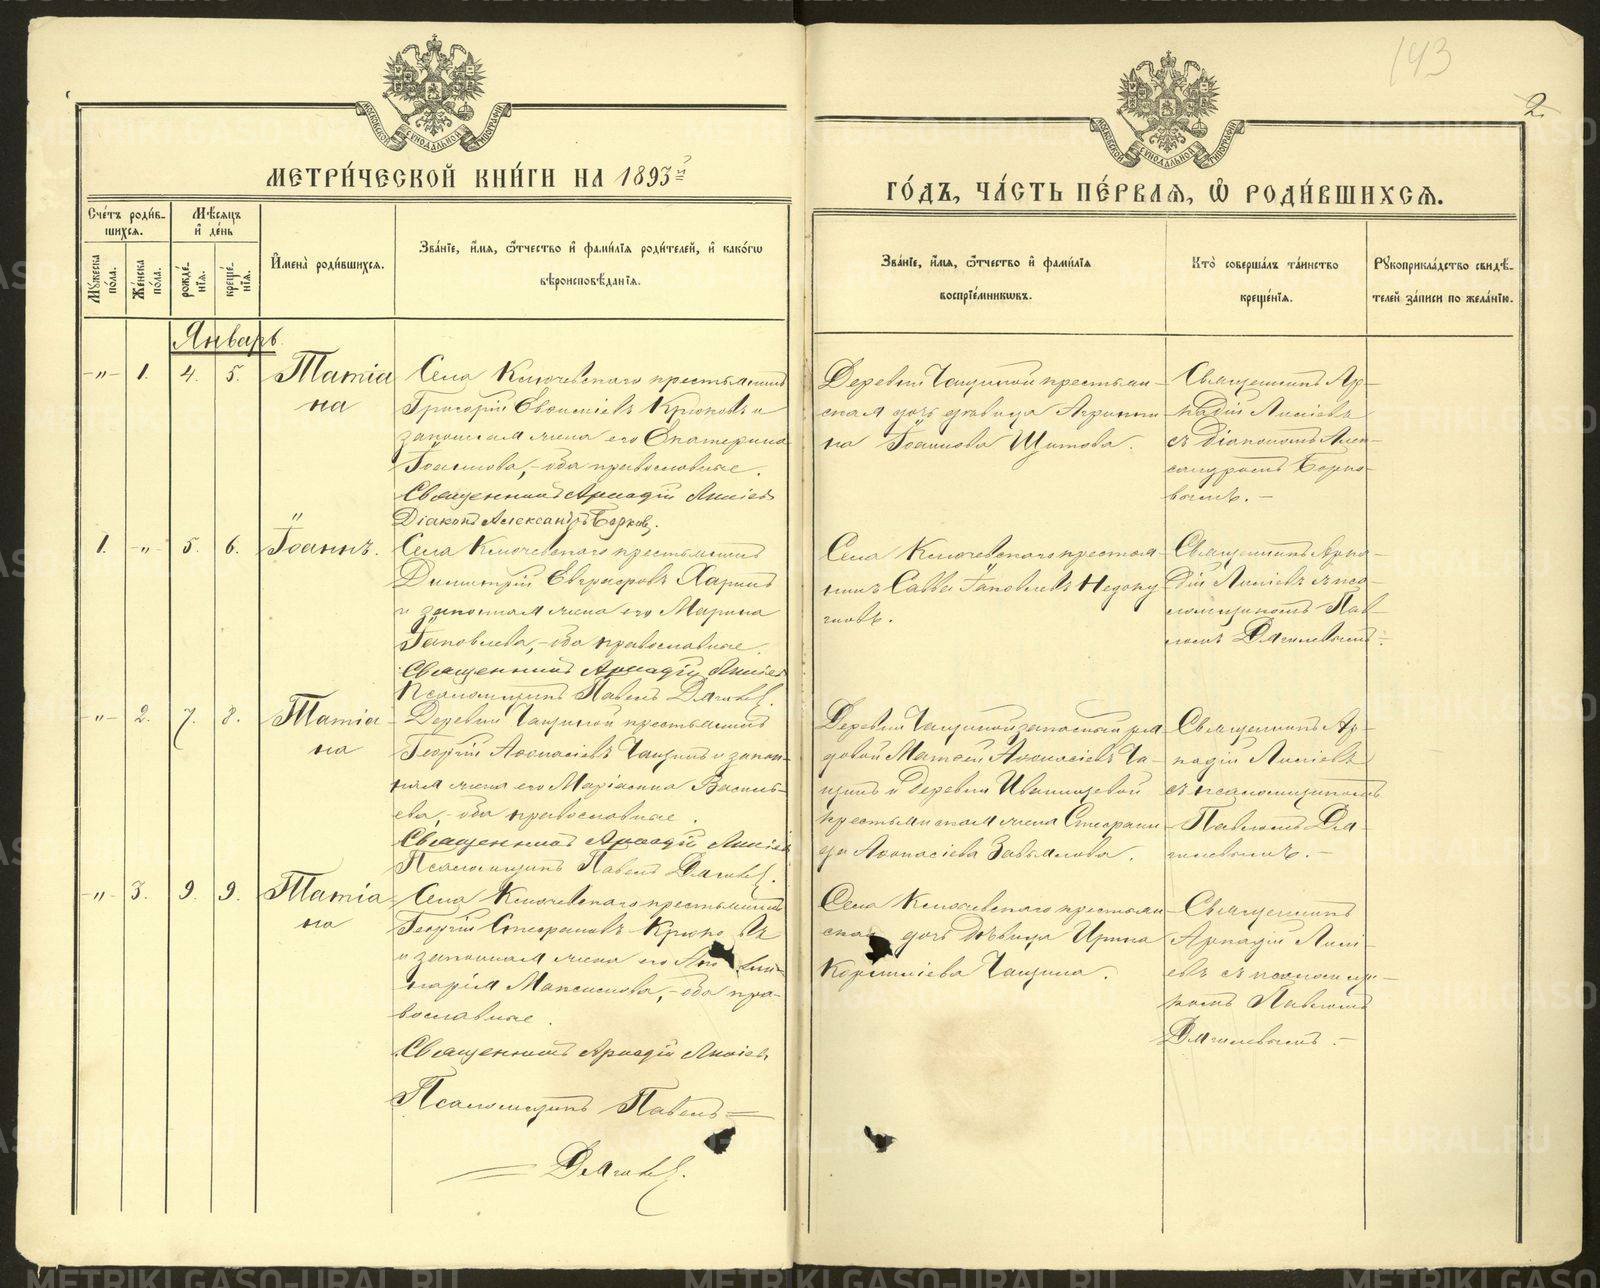 143
2.
МОСКОВСКОЙ СѴНОДАЛЬНОЙ ТИПОГРАФІИ
МОСКОВСКОЙ СѴНОДАЛЬНОЙ ТИПОГРАФІИ
МЕТРИ́ЧЕСКОЙ КНИ́ГИ НА 1893й
ГО́ДЪ, ЧА́СТЬ ПЕ́РВАѦ, Ѽ РОДИ́ВШИХСѦ.
Сче́тъ роди́в-
шихсѧ.
Мѣ́сѧцъ
и҆ де́нь
И҆мена̀ роди́вшихсѧ.
Зва́нїе, и҆́мѧ, ѻ҆́тчество и҆ фами́лїѧ роди́телей, и҆ како́гѡ
вѣроисповѣ́данїѧ.
Мꙋ́жеска
по́ла.
Же́нска
по́ла.
рожде́-
нїѧ.
креще́-
нїѧ.
Зва́нїе, и҆́мѧ, ѻ҆́тчество и҆ фами́лїѧ
воспрїе́мникѡвъ.
Кто̀ соверша́лъ та́инство
креще́нїѧ.
Рꙋкоприкла́дство свидѣ́-
телей за́писи по жела́нїю.
Январь
-"- 1. 4. 5. Татіа
на
Села Ключевского крестьянинъ
Григорій Евѳиміевъ Крюковъ и
законная жена его Екатерина
Іоаннова, - оба православные.
Священникъ Аркадій Лисіевъ
Діаконъ Александръ Борковъ.
Деревни Чащиной крестьян-
ская дочь девица Агрипи
на Іоаннова Шитова.
Священникъ Ар-
кадій Лисіевъ
съ діакономъ Алек-
сандромъ Борко-
вымъ. -
1. -"- 5. 6. Іоаннъ.
Села Ключевского крестьянинъ
Димитрій Евграфовъ Харинъ
и законная жена его Марина
Іаковлева, - оба православные.
Священникъ Аркадій Лисіевъ
Псаломщикъ Павелъ Дягилевъ.
Села Ключевского крестья
нинъ Савва Іаковлевъ
Священникъ Арка-
дій Лисіевъ съ пса-
ломщикомъ Пав-
ломъ Дягилевымъ. -
-"- 2. 7. 8. Татіа
на
Деревни Чащиной крестьянинъ
Георгій Аѳонасіевъ Чащинъ и закон-
ная жена его Маріанна Василь-
ева, - оба православные.
Священникъ Аркадій Лисіевъ
Псаломщикъ Павелъ Дягилевъ.
Деревни Чащиной запасной ря
довой Матѳей Аѳонасіевъ Ча-
щинъ и деревни Ивановой
крестьянская жена Стефани
да Аѳонасіева Завьялова.
Священникъ Ар-
кадій Лисіевъ
съ псаломщикомъ
Павломъ Дя-
гилевымъ. -
-"- 3. 9. 9. Татіа
на
Села Ключевского крестьянинъ
Георгій Стефановъ Крюковъ
и законная жена его
нарія Максимова, - оба пра-
вославные.
Священникъ Аркадій Лисіевъ
Псаломщикъ Павелъ
Дягилевъ.
Села Ключевского крестьян
ская дочь дѣвица Ирина
Корниліева Чащина.
Священникъ
Аркадій Лисі-
евъ съ псаломщи-
комъ Павломъ
Дягилевымъ. -
METRIKI.GASO-URAL.RU